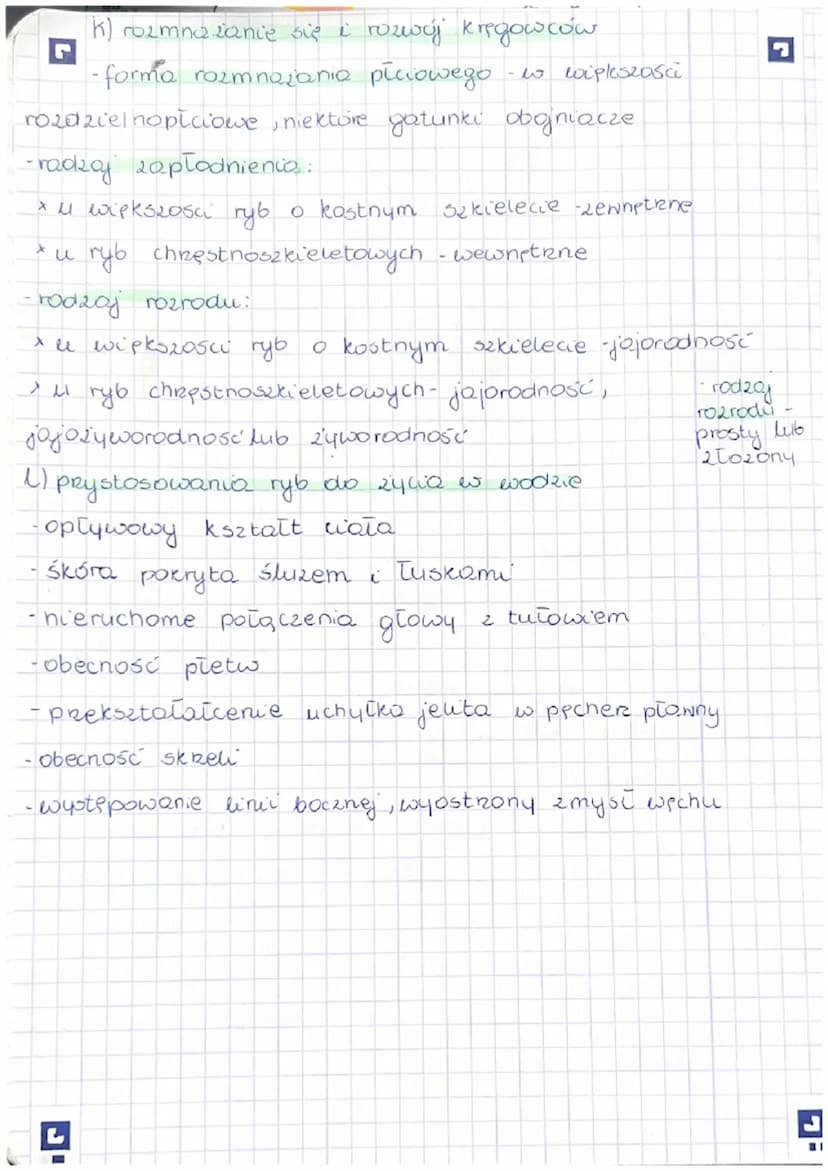 K) rozmnażanie się i rozwój kręgowców
- forma rozmnażania płciowego - w większości
rozdzielnopłciowe, niektóre gatunki obojniacze
- rodzaj zapłodnienia:
x u większości ryb o kostnym szkielecie - zewnętrzne
x u ryb chrzęstnoszkieletowych - wewnętrzne
- rodzaj rozrodu:
x u większości ryb o kostnym szkielecie - jajorodność
x u ryb chrzęstnoszkieletowych - jajorodność,
jajożyworodność lub żyworodność
- rodzaj
rozrodu -
prosty lub
złożony
L) przystosowania ryb do życia w wodzie
- opływowy kształt ciała
- skóra pokryta śluzem i łuskami
- nieruchome połączenia głowy z tułowiem
- obecność płetw
- przekształatcenie uchyłka jelita w pęcherz pławny
- obecność skrzeli
- występowanie linii bocznej, wyostrzony zmysł węchu